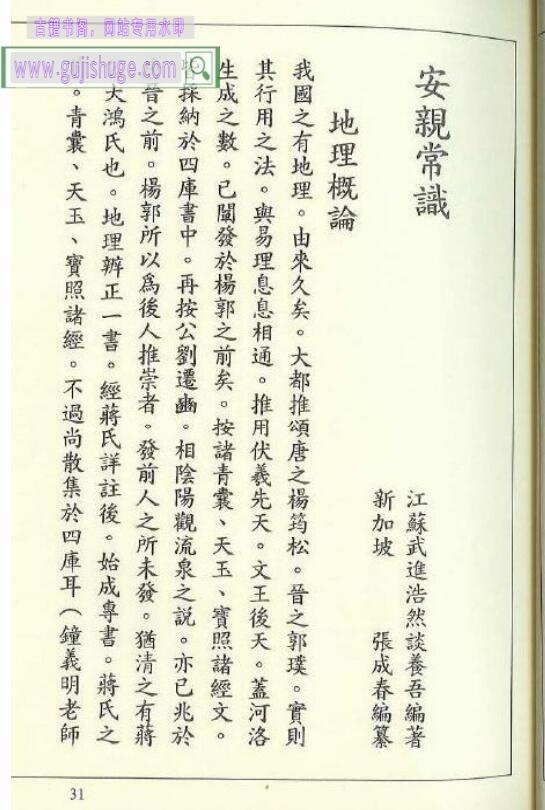 古籍书阁，网站专用水印
www.gujishuge.com
安親常識
江蘇武進浩然談養吾編著
新加坡　張成春編纂
地理概論
我國之有地理。由來久矣。大都推頌唐之楊筠松。晉之郭璞。實則
其行用之法。與易理息息相通。推用伏羲先天。文王後天。蓋河洛
生成之數。已闡發於楊郭之前矣。按諸青囊、天玉、寶照諸經文。
皆採納於四庫書中。再按公劉遷豳。相陰陽觀流泉之說。亦已兆於
晉之前。楊郭所以爲後人推崇者。發前人之所未發。猶清之有蔣
大鴻氏也。地理辨正一書。經蔣氏詳註後。始成專書。蔣氏之
。青囊、天玉、寶照諸經。不過尚散集於四庫耳（鐘義明老師
31